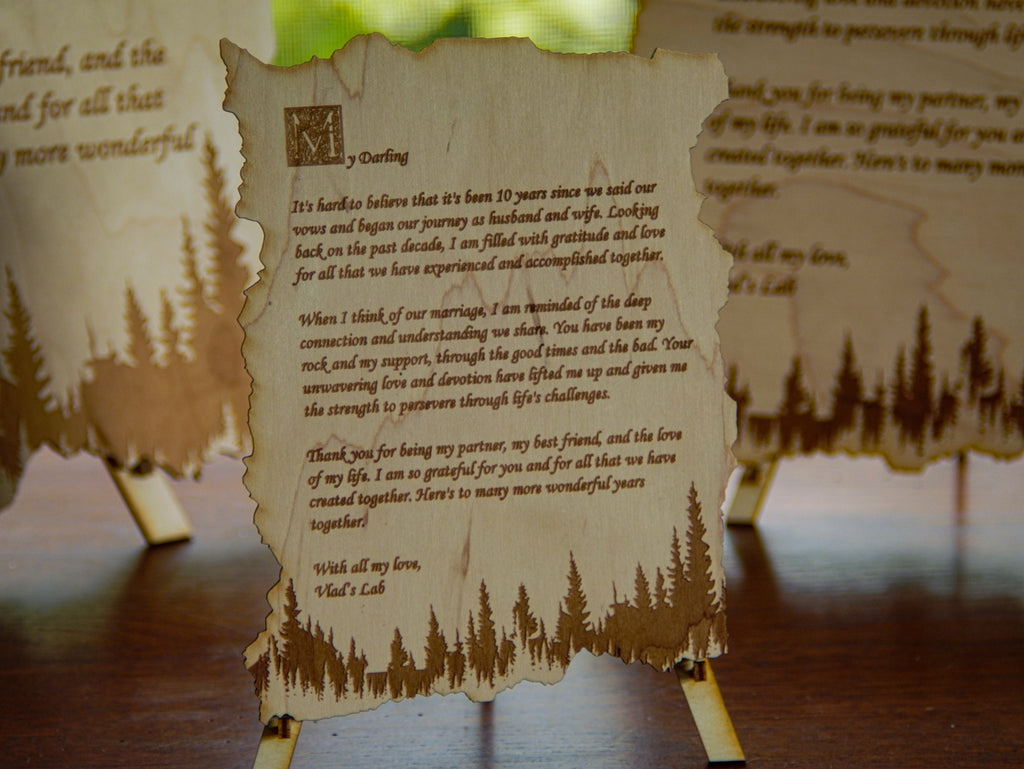 My Darling
It's hard to believe that it's been 10 years since we said our
vows and began our journey as husband and wife. Looking
back on the past decade, I am filled with gratitude and love
for all that we have experienced and accomplished together.
When I think of our marriage, I am reminded of the deep
connection and understanding we share. You have been my
rock and my support, through the good times and the bad. Your
unwavering love and devotion have lifted me up and given me
the strength to persevere through life's challenges.
Thank you for being my partner, my best friend, and the love
of my life. I am so grateful for you and for all that we have
created together. Here's to many more wonderful years
together.
With all my love,
Vlad's Lab
friend, and the
and for all that
more wonderful
the strength to persevere through
you for being my partner, my
of my life. I am so grateful for you
created together. Here's to many more
together.
all my love,
Lab